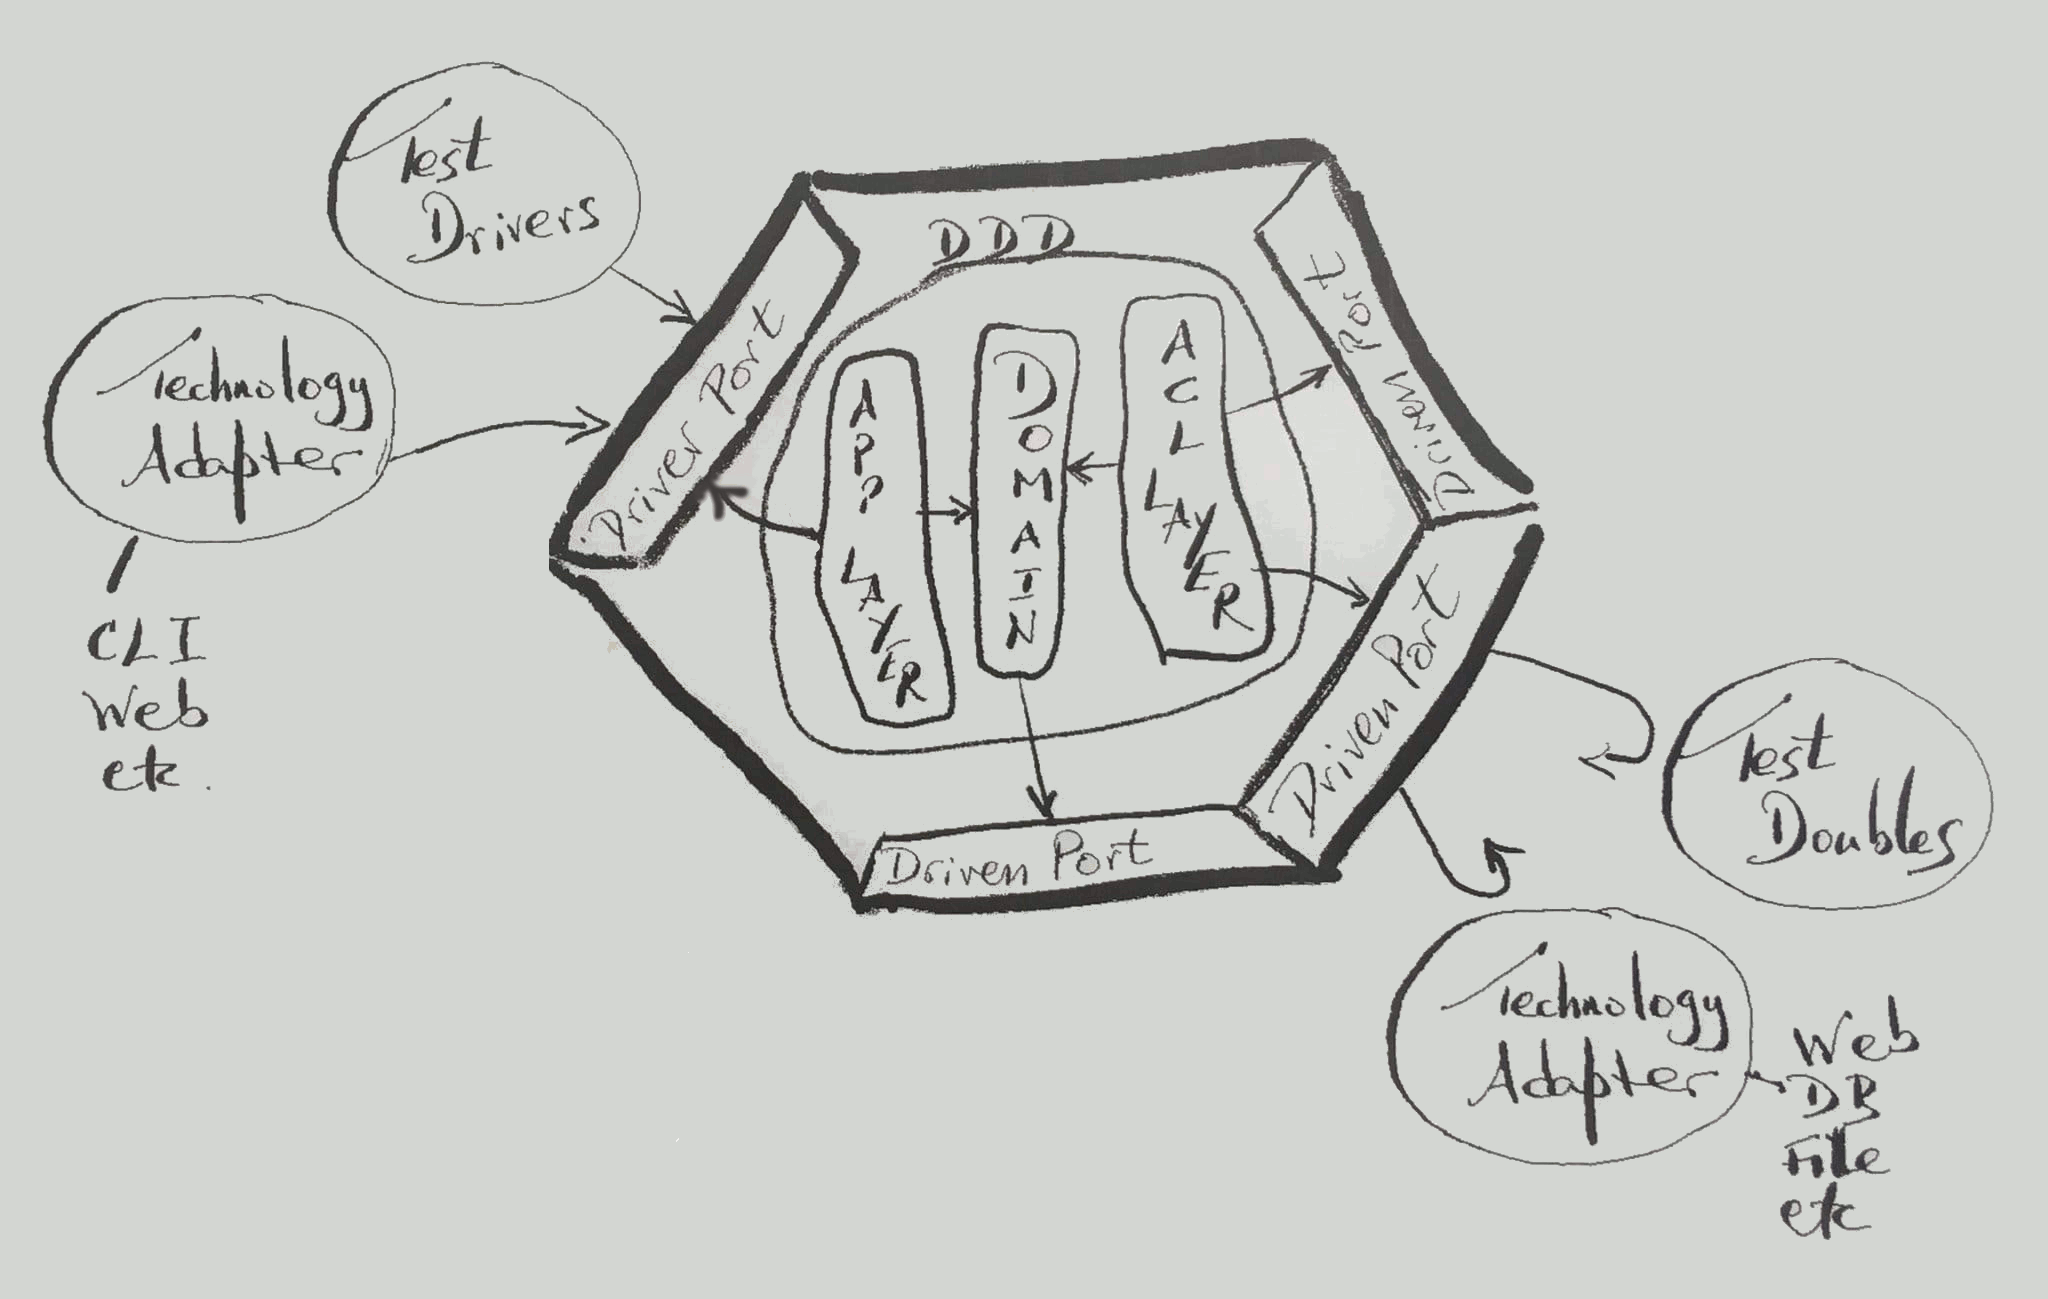 Test
Drivers
Technology
Adapter
CLI
Web
etc.
DDD
Driver Port
APP LAYER
DOMAIN
ACL LAYER
Driven Port
Driven Port
Driven Port
Test
Doubles
Technology
Adapter
Web
DB
File
etc